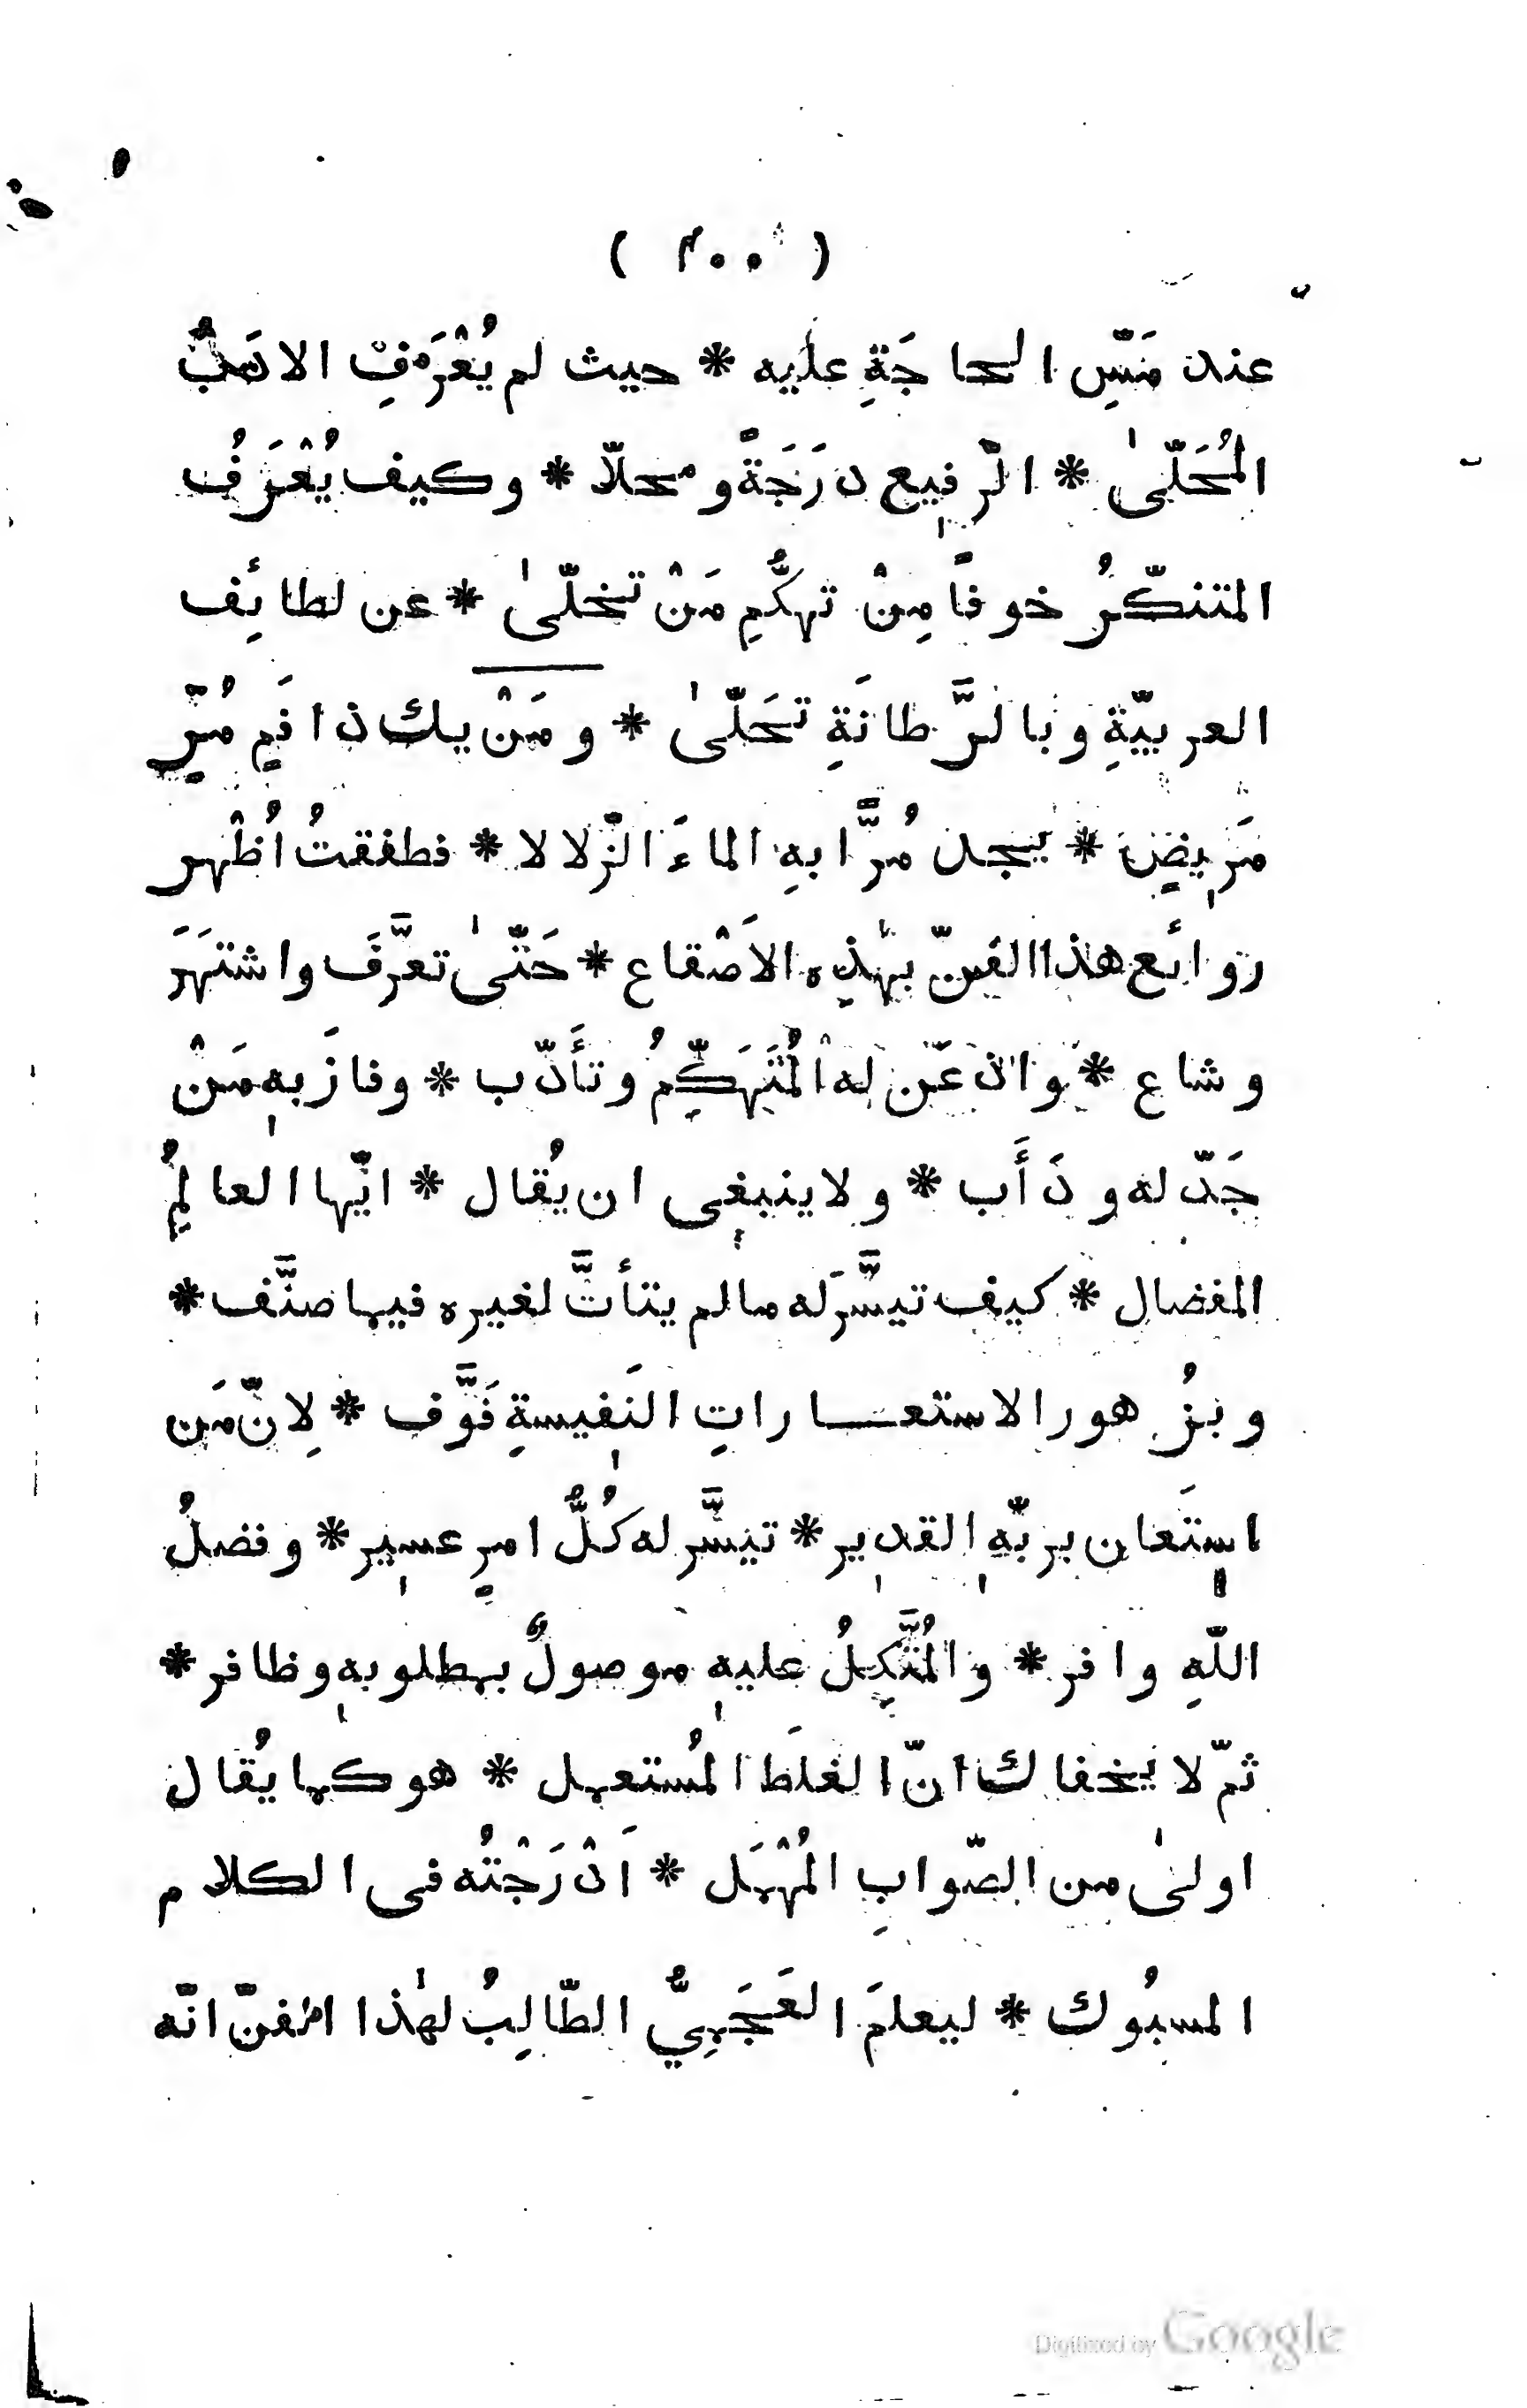 ( ۴۰۰ )
عند مَسِّ الحاجَةِ عليه * حيث لم يُعْرَفِ الادبُ
المُحَلّىٰ * الرّفيع دَرَجَةً ومحلاّ * وكيف يُعْرَفُ
المتنكّرُ خوفًا مِنْ تهكُّمِ مَنْ تخلّىٰ * عن لطائِف
العربيّةِ وبالرَّطانَةِ تحَلّىٰ * ومَنْ يك ذا فَمٍ مُرٍّ
مَرِيضٍ * يجد مُرًّا بهِ الماءَ الزّلالا * فطفقتُ اُظْهر
روائع هذا الفنّ بهٰذِه الاَصْقاع * حَتّىٰ تعرَّفَ واشتهَرَ
وشاع * واذعَن له المُتَهَكِّمُ وتأدّب * وفازَ بهٖ مَنْ
جَدّ له ودَأَب * ولا ينبغي ان يُقال * ايّها العالِمُ
المفضال * كيف تيسَّرَ له ما لم يتأتَّ لغيره فيما صنَّف *
وبزُهور الاستعارات النفيسةِ فَوَّف * لِانّ مَن
استَعان بربّهِ القدير * تيسَّر له كُلُّ امرٍ عسير * وفضلُ
اللّهِ وافر * والمُتَّكِلُ عليهٖ موصولٌ بمطلوبهٖ وظافر *
ثمّ لا يخفاك انّ الغلَط المُستعمل * هو كما يُقال
اولىٰ من الصّوابِ المُهْمَل * اَدْرَجْتُه فى الكلام
المسبُوك * ليعلمَ العَجَمِيُّ الطّالِبُ لهٰذا الفنّ انّه
Digitized by Google